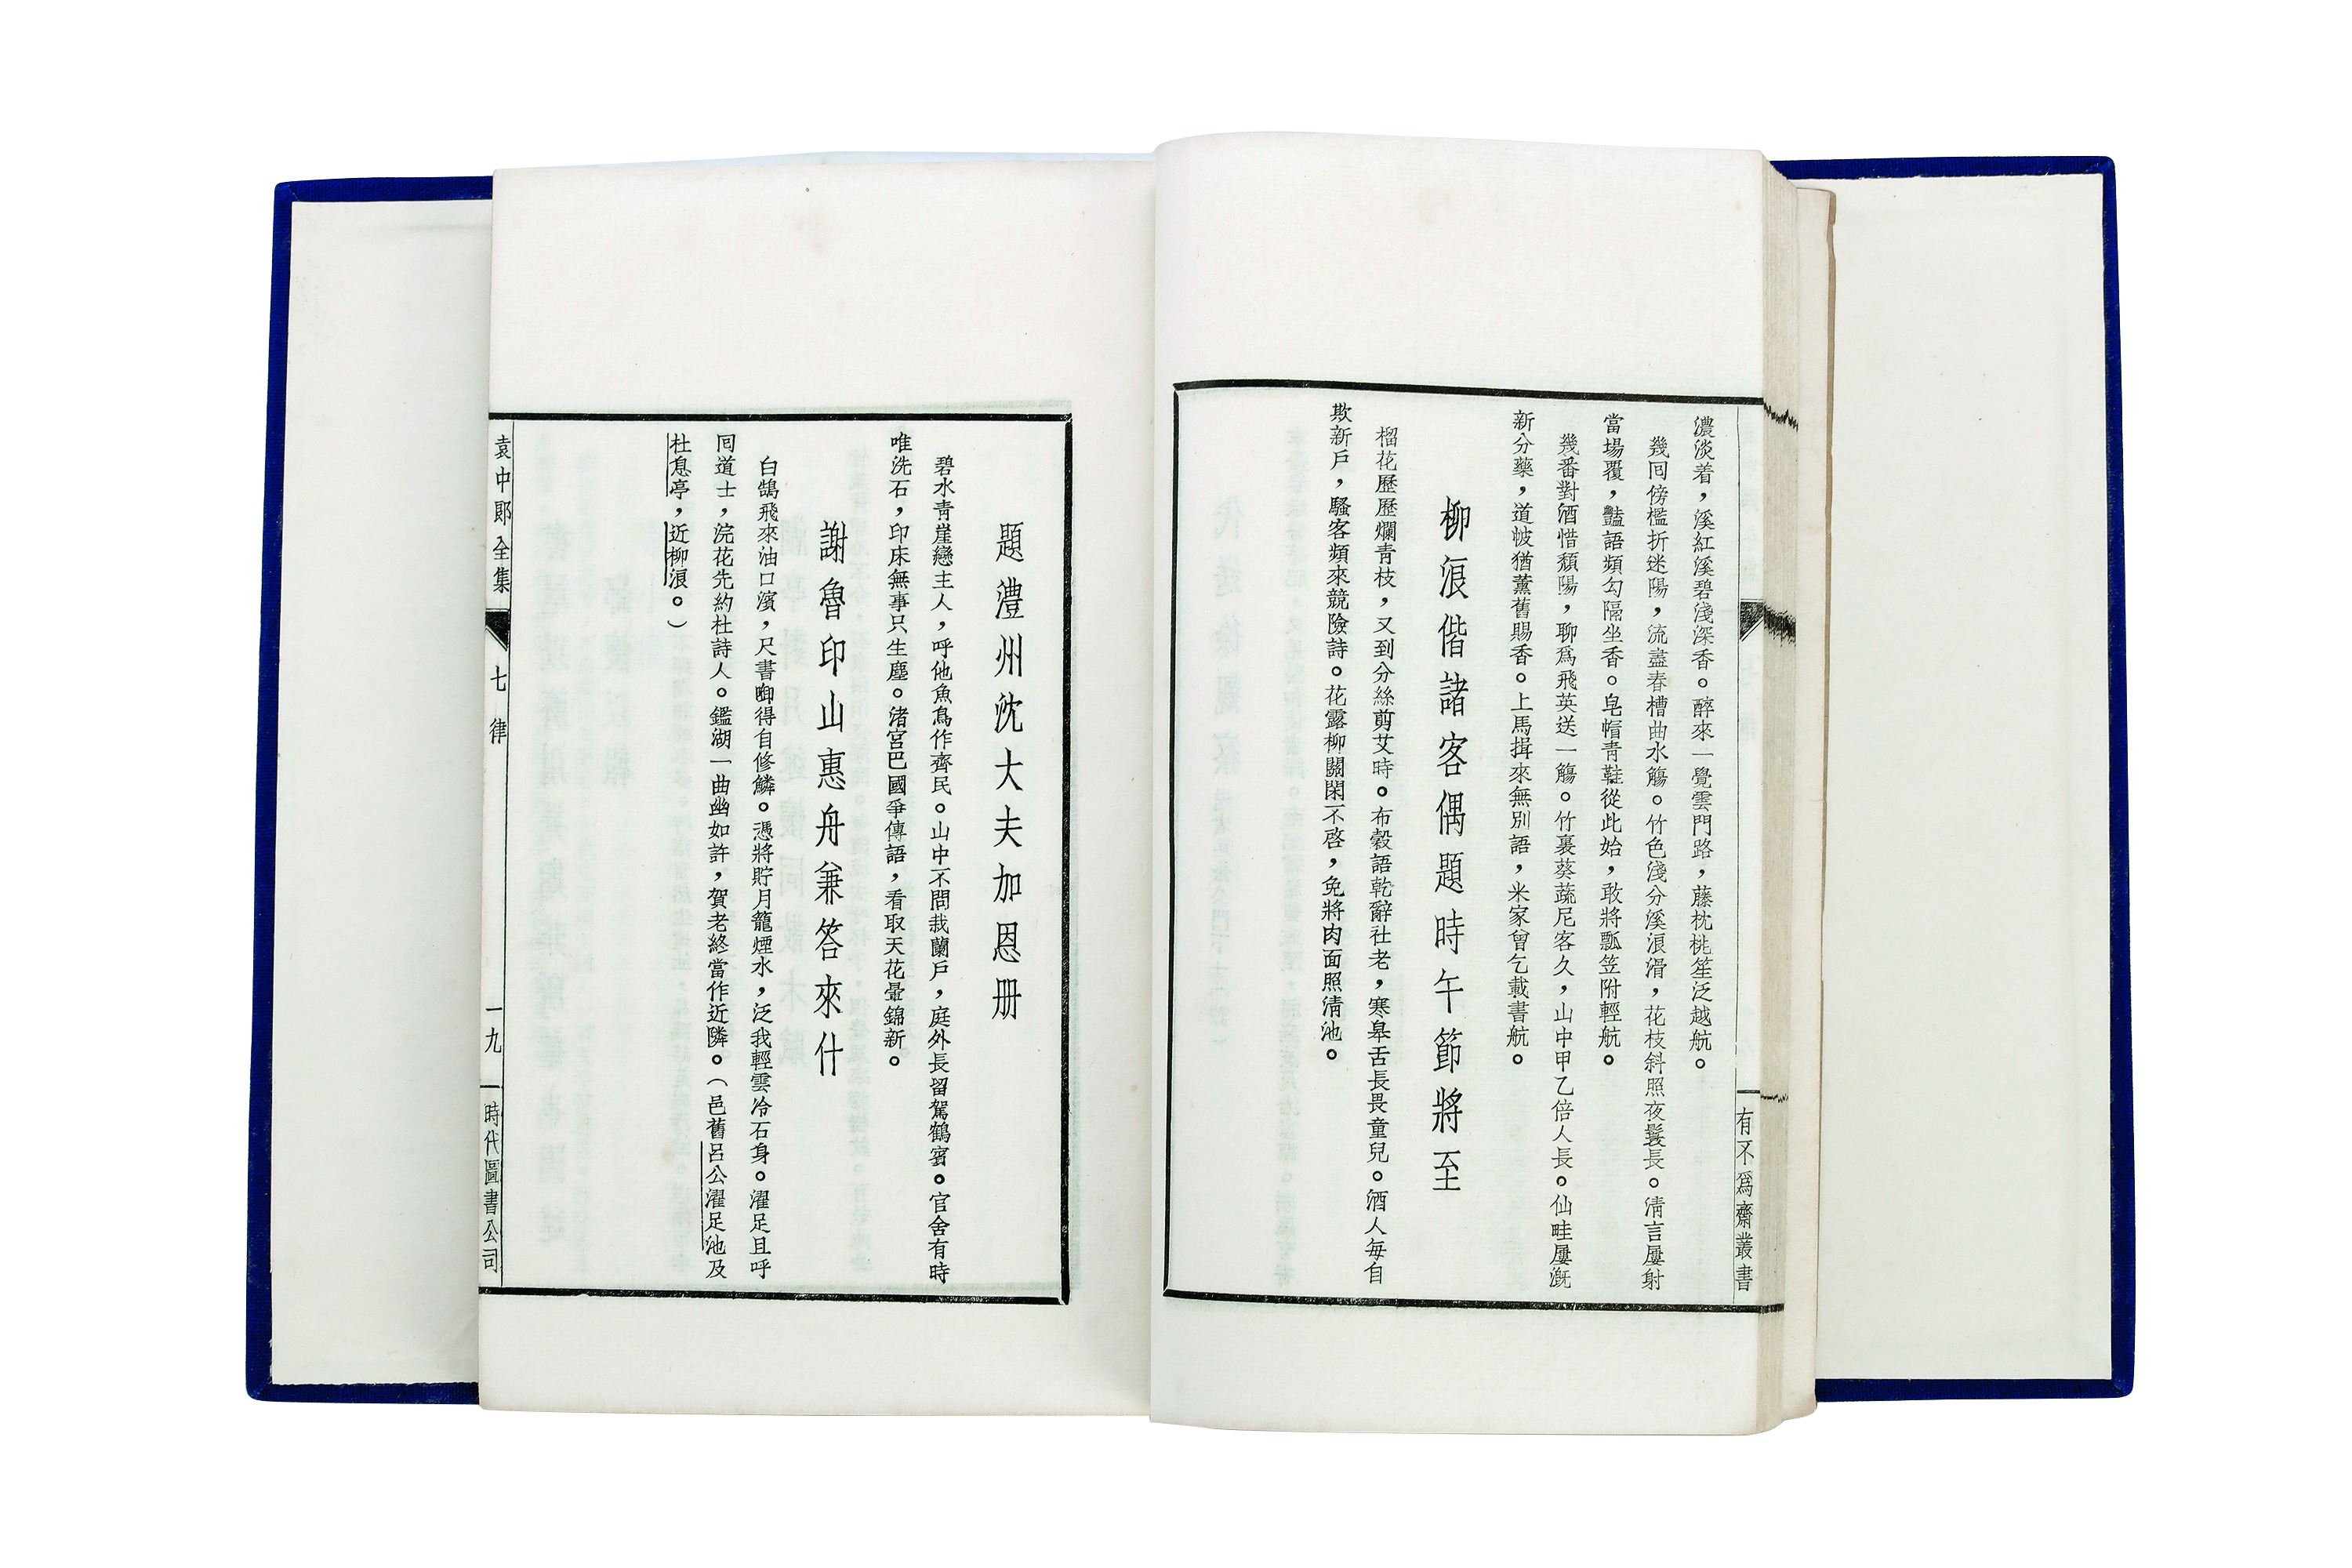 有不爲齋叢書
濃淡着，溪紅溪碧淺深香。醉來一覺雲門路，藤枕桃笙泛越航。
幾囘傍檻折迷陽，流盡春槽曲水觴。竹色淺分溪浪滑，花枝斜照夜鬟長。淸言屢射
當場覆，豔語頻勾隔坐香。皂帽靑鞋從此始，敢將瓢笠附輕航。
幾番對酒惜頹陽，聊爲飛英送一觴。竹裏葵蔬尼客久，山中甲乙倍人長。仙畦屢漑
新分藥，道帔猶薰舊賜香。上馬揖來無別語，米家曾乞載書航。
柳浪偕諸客偶題時午節將至
榴花歷歷爛靑枝，又到分絲剪艾時。布穀語乾辭社老，寒皋舌長畏童兒。酒人每自
欺新戶，騷客頻來競險詩。花露柳關閑不啓，免將肉面照淸池。
題澧州沈大夫加恩册
碧水靑崖戀主人，呼他魚鳥作齊民。山中不問栽蘭戶，庭外長留駕鶴賓。官舍有時
唯洗石，印床無事只生塵。渚宮巴國爭傳語，看取天花暈錦新。
謝魯印山惠舟兼答來什
白鵠飛來油口濱，尺書啣得自修鱗。憑將貯月籠煙水，泛我輕雲冷石身。濯足且呼
同道士，浣花先約杜詩人。鑑湖一曲幽如許，賀老終當作近隣。（邑舊呂公濯足池及
杜息亭，近柳浪。）
袁中郞全集
七律
一九
時代圖書公司